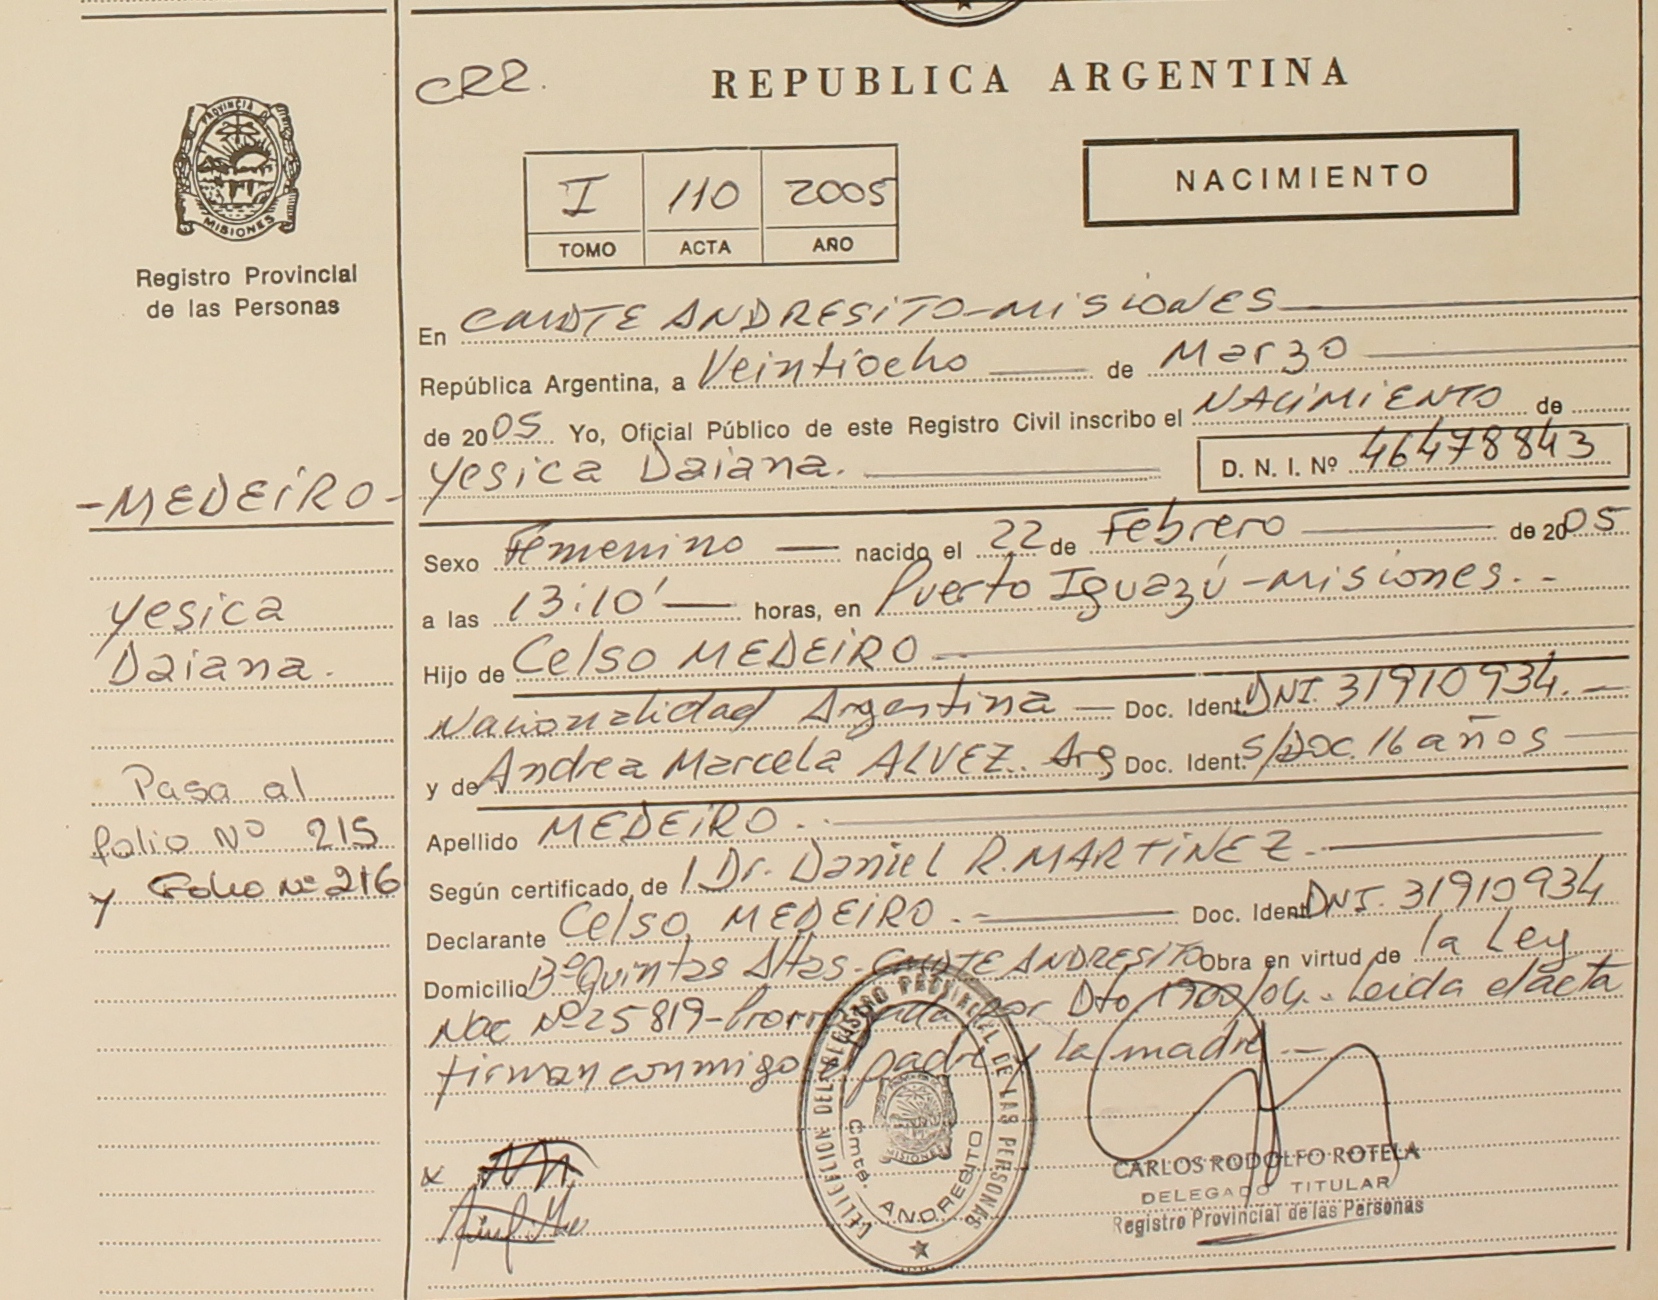 CRR.
REPUBLICA ARGENTINA
PROVINCIA DE
MISIONES
Registro Provincial
de las Personas
I 110 2005
TOMO ACTA AÑO
NACIMIENTO
En CMDTE ANDRESITO-MISIONES
República Argentina, a Veintiocho de Marzo
de 2005 Yo, Oficial Público de este Registro Civil inscribo el NACIMIENTO de
Yesica Daiana. D. N. I. Nº 46478843
-MEDEIRO-
Yesica
Daiana.
Pasa al
folio Nº 215
y Folio Nº 216
Sexo Femenino nacido el 22 de Febrero de 2005
a las 13:10' horas, en Puerto Iguazú -Misiones.-
Hijo de Celso MEDEIRO.-
Nacionalidad Argentina Doc. Ident. DNI. 31910934.-
y de Andrea Marcela ALVEZ. Arg Doc. Ident. S/DOC. 16 años
Apellido MEDEIRO.-
Según certificado, de Dr. Daniel R. MARTINEZ.-
Declarante Celso MEDEIRO.- Doc. Ident. DNI. 31910934
Domicilio Bº Quintas Altas-CMDTE ANDRESITO Obra en virtud de la Ley
Nac Nº 25819- por Dto 1900/04.- Leida el acta
firman conmigo el padre y la madre.-
x
DELEGACION DEL REGISTRO PROVINCIAL DE LAS PERSONAS
Cmte. ANDRESITO
MISIONES
CARLOS RODOLFO ROTELA
DELEGADO TITULAR
Registro Provincial de las Personas